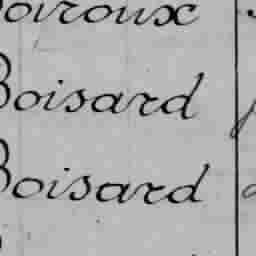 Boiroux
Boisard
Boisard